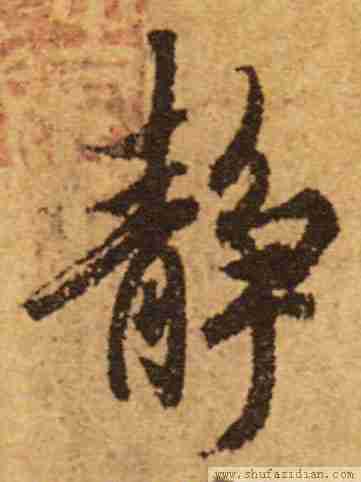 静
www.shufazidian.com